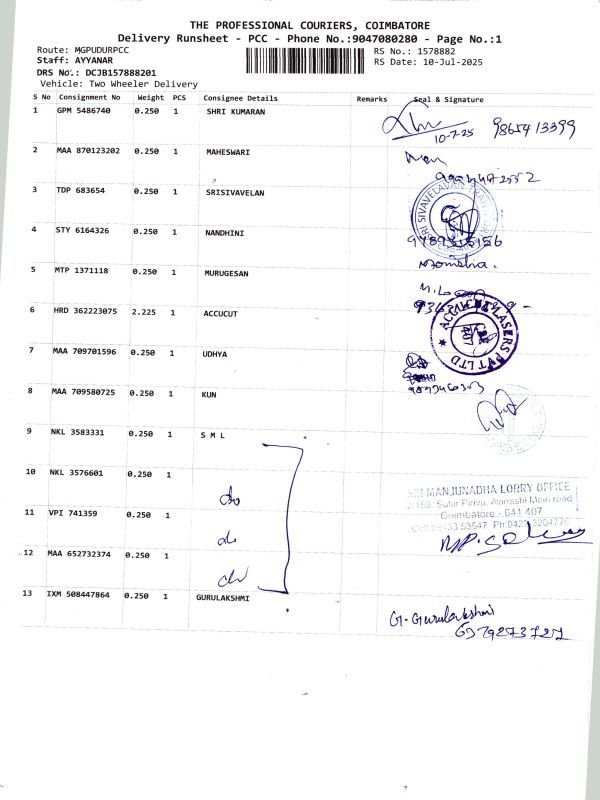 THE PROFESSIONAL COURIERS, COIMBATORE
Delivery Runsheet - PCC - Phone No.:9047080280 - Page No.:1
Route: MGPUDURPCC
RS No.: 1578882
Staff: AYYANAR
RS Date: 10-Jul-2025
DRS No.: DCJB157888201
Vehicle: Two Wheeler Delivery
S No Consignment No Weight PCS Consignee Details Remarks Seal & Signature
1 GPM 5486740 0.250 1 SHRI KUMARAN
10-7-25 9865413399
2 MAA 870123202 0.250 1 MAHESWARI
3 TDP 683654 0.250 1 SRISIVAVELAN
4 STY 6164326 0.250 1 NANDHINI
5 MTP 1371118 0.250 1 MURUGESAN
6 HRD 362223075 2.225 1 ACCUCUT
7 MAA 709701596 0.250 1 UDHYA
8 MAA 709580725 0.250 1 KUN
9 NKL 3583331 0.250 1 S M L
10 NKL 3576601 0.250 1
SRI MANJUNADHA LORRY OFFICE
Sulur Pirivu, Avinashi Main road
11 VPI 741359 0.250 1
Coimbatore - 641 407
12 MAA 652732374 0.250 1
13 IXM 508447864 0.250 1 GURULAKSHMI
G. Gurulakshmi